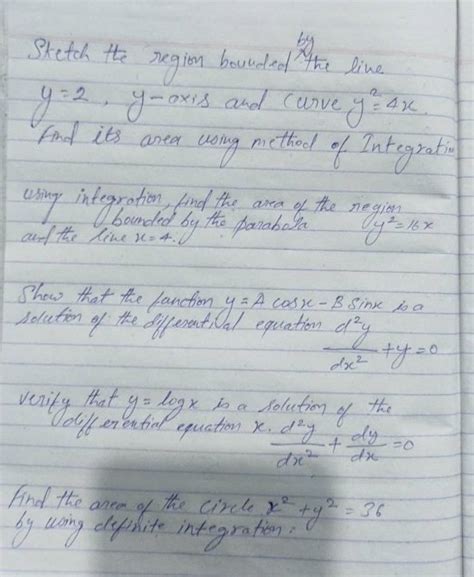 by
Sketch the region bounded the line
y=2, y-axis and curve y²=4x.
Find its area using method of Integratio
using integration, find the area of the region
bounded by the parabola y²=16x
and the line x=4.
Show that the function y=A cosx-B sinx is a
solution of the differential equation d²y/dx² + y=0
verify that y=logx is a solution of the
differential equation x. d²y/dx² + dy/dx =0
Find the area of the circle x²+y²=36
by using definite integration: